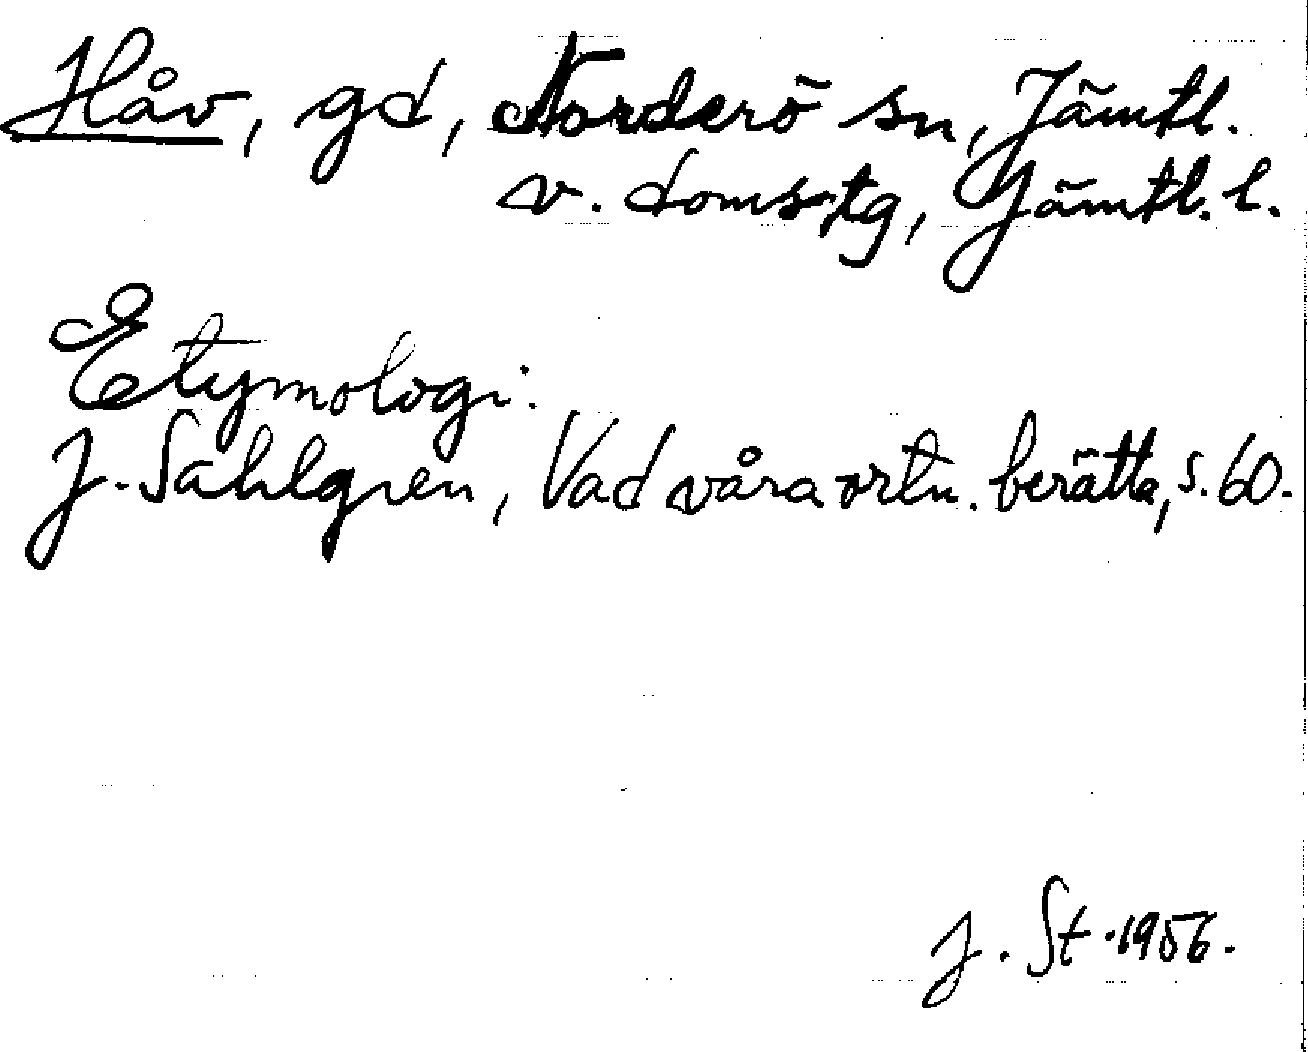 Håv, gd, Norderö sn, Jämtl.
v. domstg, Jämtl. l.
Etymologi:
J. Sahlgren, Vad våra ortn. berätta, s. 60.
J. St. 1956.